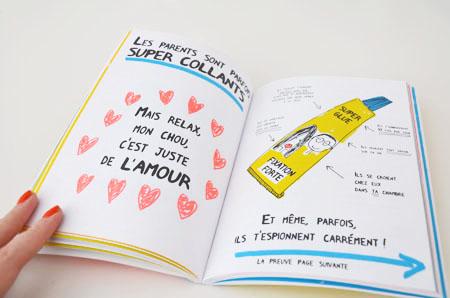 LES PARENTS SONT PARFOIS
SUPER COLLANTS
MAIS RELAX,
MON CHOU,
C'EST JUSTE
DE L'AMOUR
SUPER
GLUE
FIXATION
FORTE
ILS SE CROIENT
CHEZ EUX
DANS TA CHAMBRE
ET MÊME, PARFOIS,
ILS T'ESPIONNENT CARRÉMENT !
LA PREUVE PAGE SUIVANTE